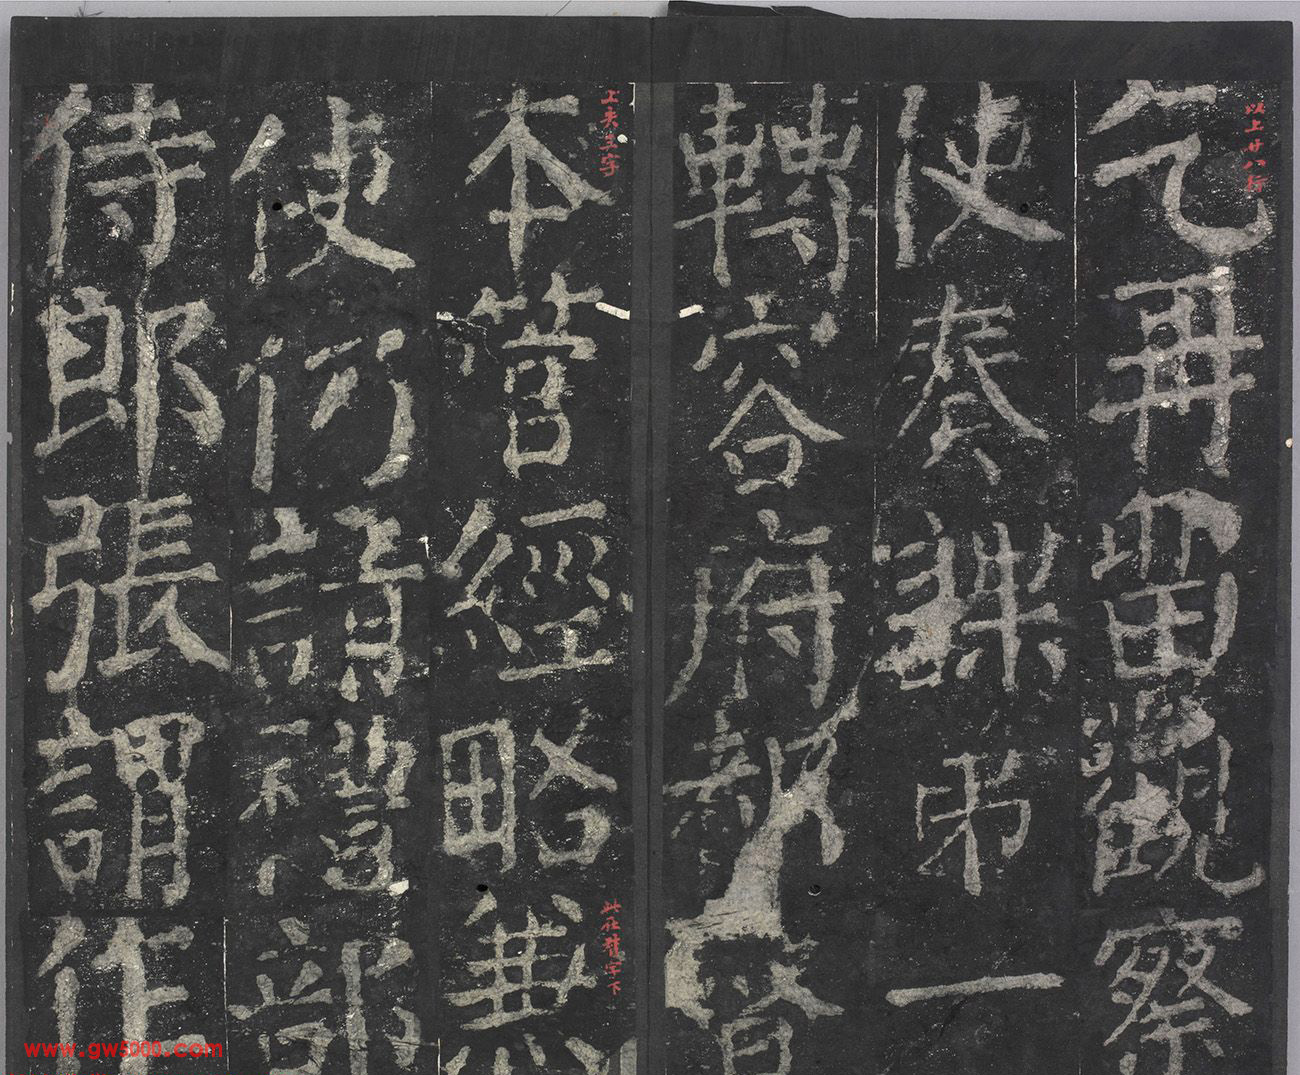 以上廿八行
乞再留觀察
使奏課第一
轉容府都督
上失三字
本管經略
此在督字下
使仍請禮部
侍郎張謂作
www.gw5000.com